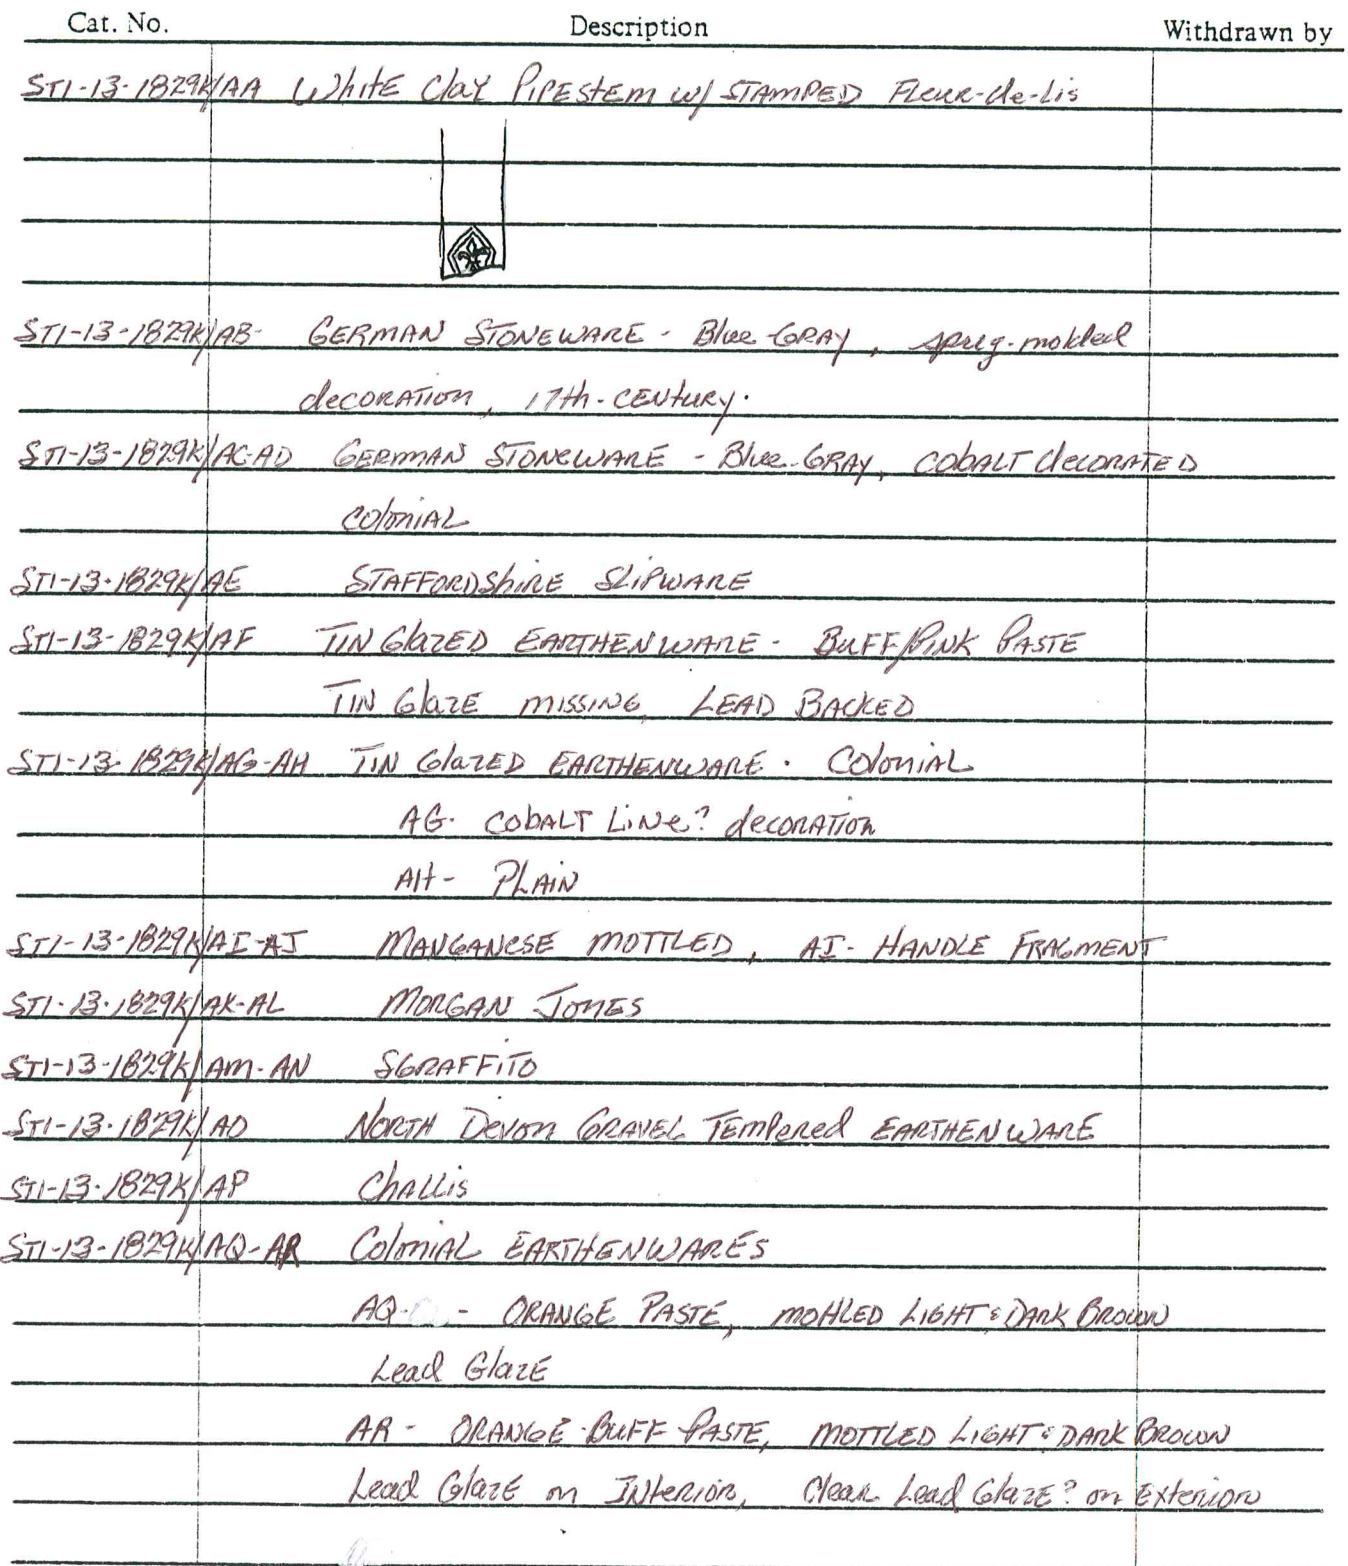 Cat. No. Description Withdrawn by
ST1-13-1829K/AA White Clay Pipestem w/ STAMPED Fleur-de-Lis
ST1-13-1829K/AB- GERMAN STONEWARE - Blue-GRAY, sprig-molded
decoration, 17th-CENTURY.
ST1-13-1829K/AC-AD GERMAN STONEWARE - Blue-GRAY, Cobalt decorated
Colonial
ST1-13-1829K/AE STAFFORDShire SLIPWARE
ST1-13-1829K/AF TIN Glazed EARTHENWARE - BUFF/PINK PASTE
TIN Glaze missing, LEAD BACKED
ST1-13-1829K/AG-AH TIN Glazed EARTHENWARE - Colonial
AG- Cobalt Line? decoration
AH- PLAIN
ST1-13-1829K/AI-AJ MANGANESE MOTTLED, AI- HANDLE FRAGMENT
ST1-13-1829K/AK-AL MORGAN JONES
ST1-13-1829K/AM-AN SGRAFFITO
ST1-13-1829K/AO NORTH Devon GRAVEL Tempered EARTHENWARE
ST1-13-1829K/AP Challis
ST1-13-1829K/AQ-AR Colonial EARTHENWARES
AQ- - ORANGE PASTE, MOTTLED LIGHT & DARK BROWN
Lead Glaze
AR- ORANGE-BUFF PASTE, MOTTLED LIGHT & DARK BROWN
Lead Glaze on Interior, Clear Lead Glaze? on Exterior